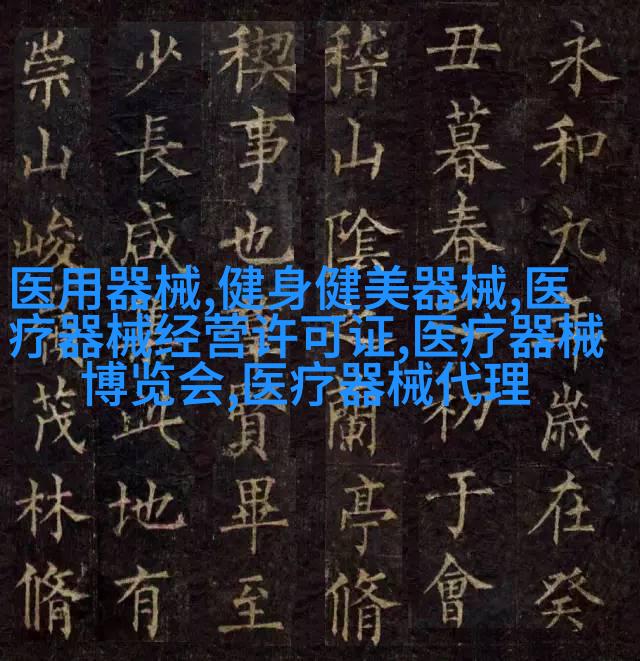 永和九年歳在癸
丑暮春初于會
稽山陰之蘭亭脩
禊事也賢畢至
少長咸集此地有
崇山峻茂林脩
医用器械,健身健美器械,医
疗器械经营许可证,医疗器械
博览会,医疗器械代理